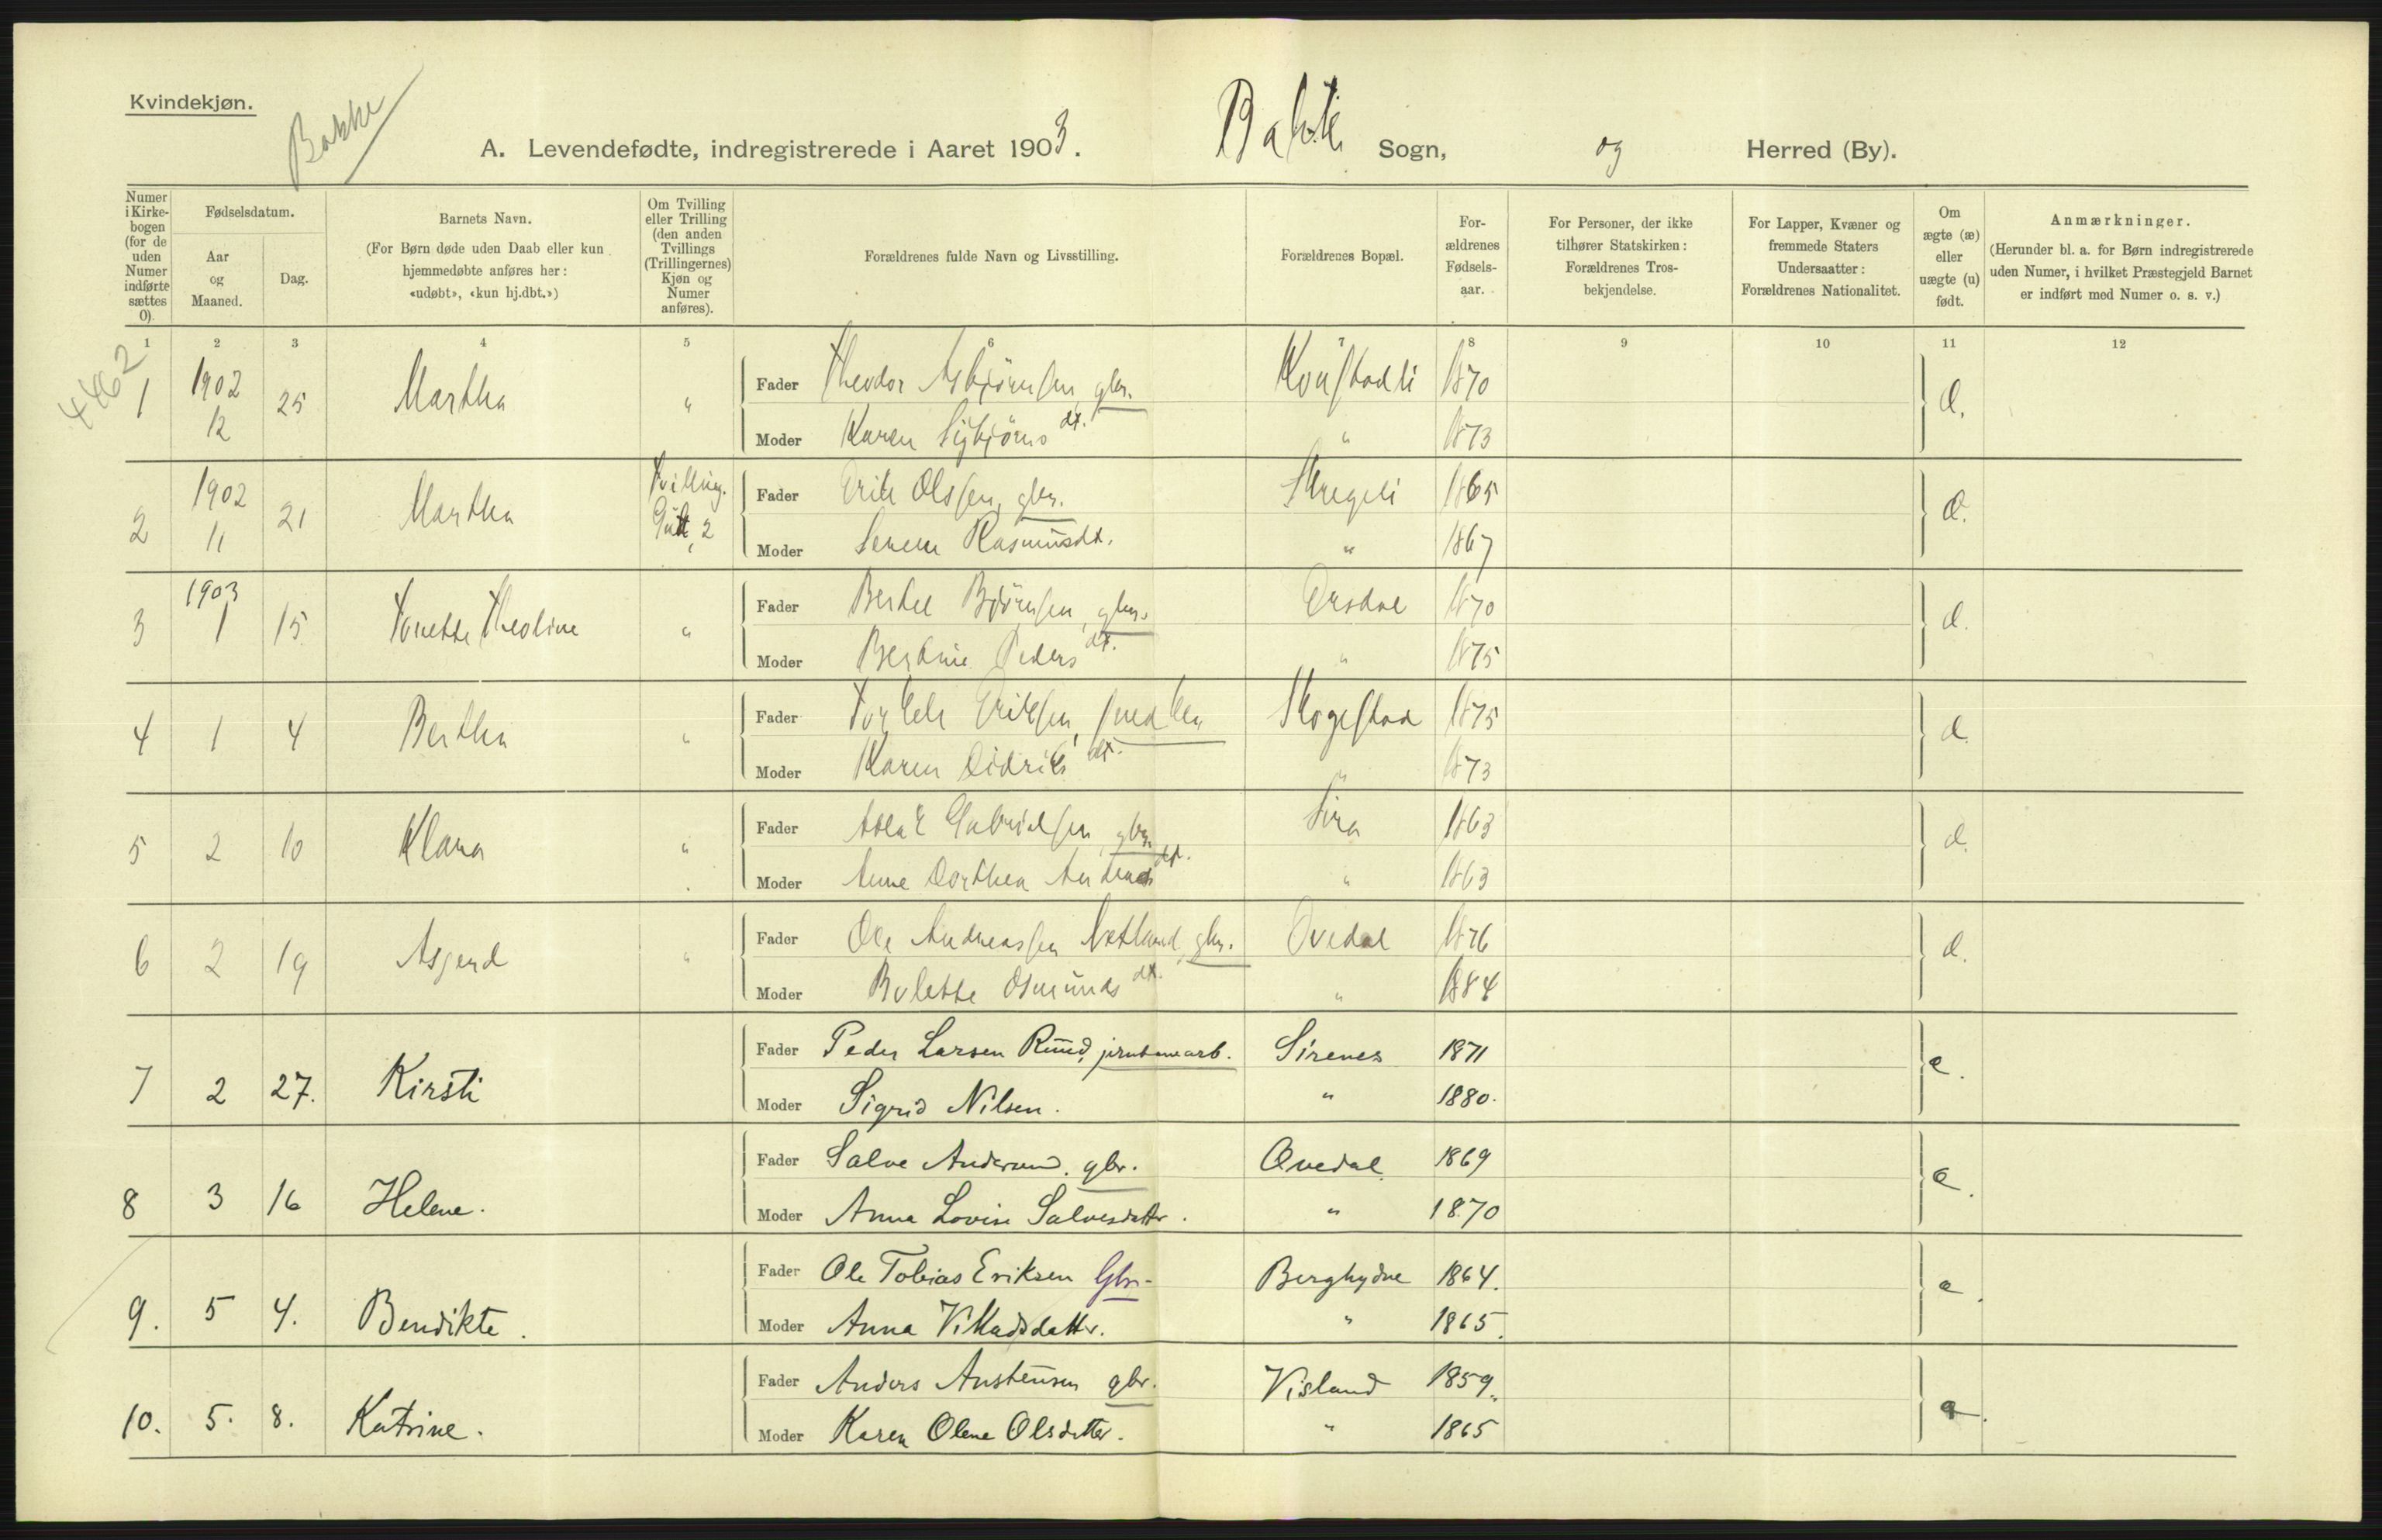 Kvindekjøn.
Bakke
A. Levendefødte, indregistrerede i Aaret 1903. Bakke Sogn, og Herred (By).
Numer i Kirkebogen (for de uden Numer indførte sættes 0).
Fødselsdatum.
Aar og Maaned.
Dag.
Barnets Navn.
(For Børn døde uden Daab eller kun hjemmedøbte anføres her: «udøbt», «kun hj.dbt.»)
Om Tvilling eller Trilling (den anden Tvillings (Trillingernes) Kjøn og Numer anføres).
Forældrenes fulde Navn og Livsstilling.
Forældrenes Bopæl.
Forældrenes Fødselsaar.
For Personer, der ikke tilhører Statskirken: Forældrenes Trosbekjendelse.
For Lapper, Kvæner og fremmede Staters Undersaatter: Forældrenes Nationalitet.
Om ægte (æ) eller uægte (u) født.
Anmærkninger.
(Herunder bl. a. for Børn indregistrerede uden Numer, i hvilket Præstegjeld Barnet er indført med Numer o. s. v.)
1 2 3 4 5 6 7 8 9 10 11 12
4462
1 1902 12 25 Martha " Fader Theodor Asbjörnsen, gbr. 1870
Moder Karen Sigbjörns dt. " 1873
2 1902 11 21 Martha Tvilling. Gut, 2 Fader Erik Olssen, gbr. Skregeli 1865
Moder Serene Rasmusdt. " 1867
3 1903 1 15 Tonette Theoline " Fader Bertel Björnsen, gbr. Ersdal 1870
Moder Bertine Peders dt. " 1875
4 1 4 Bertha " Fader Torkel Eriksen, Skogestad 1875
Moder Karen Didriks dt. " 1873
5 2 10 Klara " Fader Aslak Gabrielsen, gbr. Sira 1863
Moder Anne Dorthea dt. " 1863
6 2 19 Asgerd " Fader Ole Andreassen Netland, gbr. Ovedal 1876
Moder Bolette Osmunds dt. " 1884
7 2 27. Kirsti Fader Peder Larsen Ruud, jernbanearb. Sirenes 1871 e.
Moder Sigrid Nilsen. " 1880.
8 3 16 Helene. Fader Salve gbr. Ovedal 1869 e.
Moder Anna Lovise Salvesdatter. " 1870
9. 5 4. Bendikte. Fader Ole Tobias Eriksen Gbr. 1864. e.
Moder Anna " 1865.
10. 5. 8. Katrine. Fader Anders Austensen gbr. Visland 1859.
Moder Karen Olene Olsdatter. " 1865